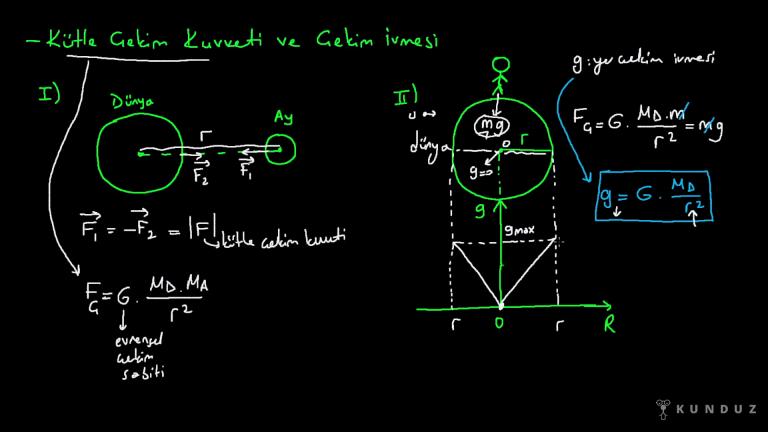 - Kütle Çekim Kuvveti ve Çekim İvmesi
I)
Dünya
Ay
r
F₂
F₁
F₁ = -F₂ = |F|
kütle çekim kuvveti
F_G = G · M_D · M_A / r²
evrensel
çekim
sabiti
II)
dünya
mg
O
r
g=0
g
gmax
r
0
r
R
g: yer çekim ivmesi
F_G = G · M_D · m / r² = mg
g = G · M_D / r²
KUNDUZ